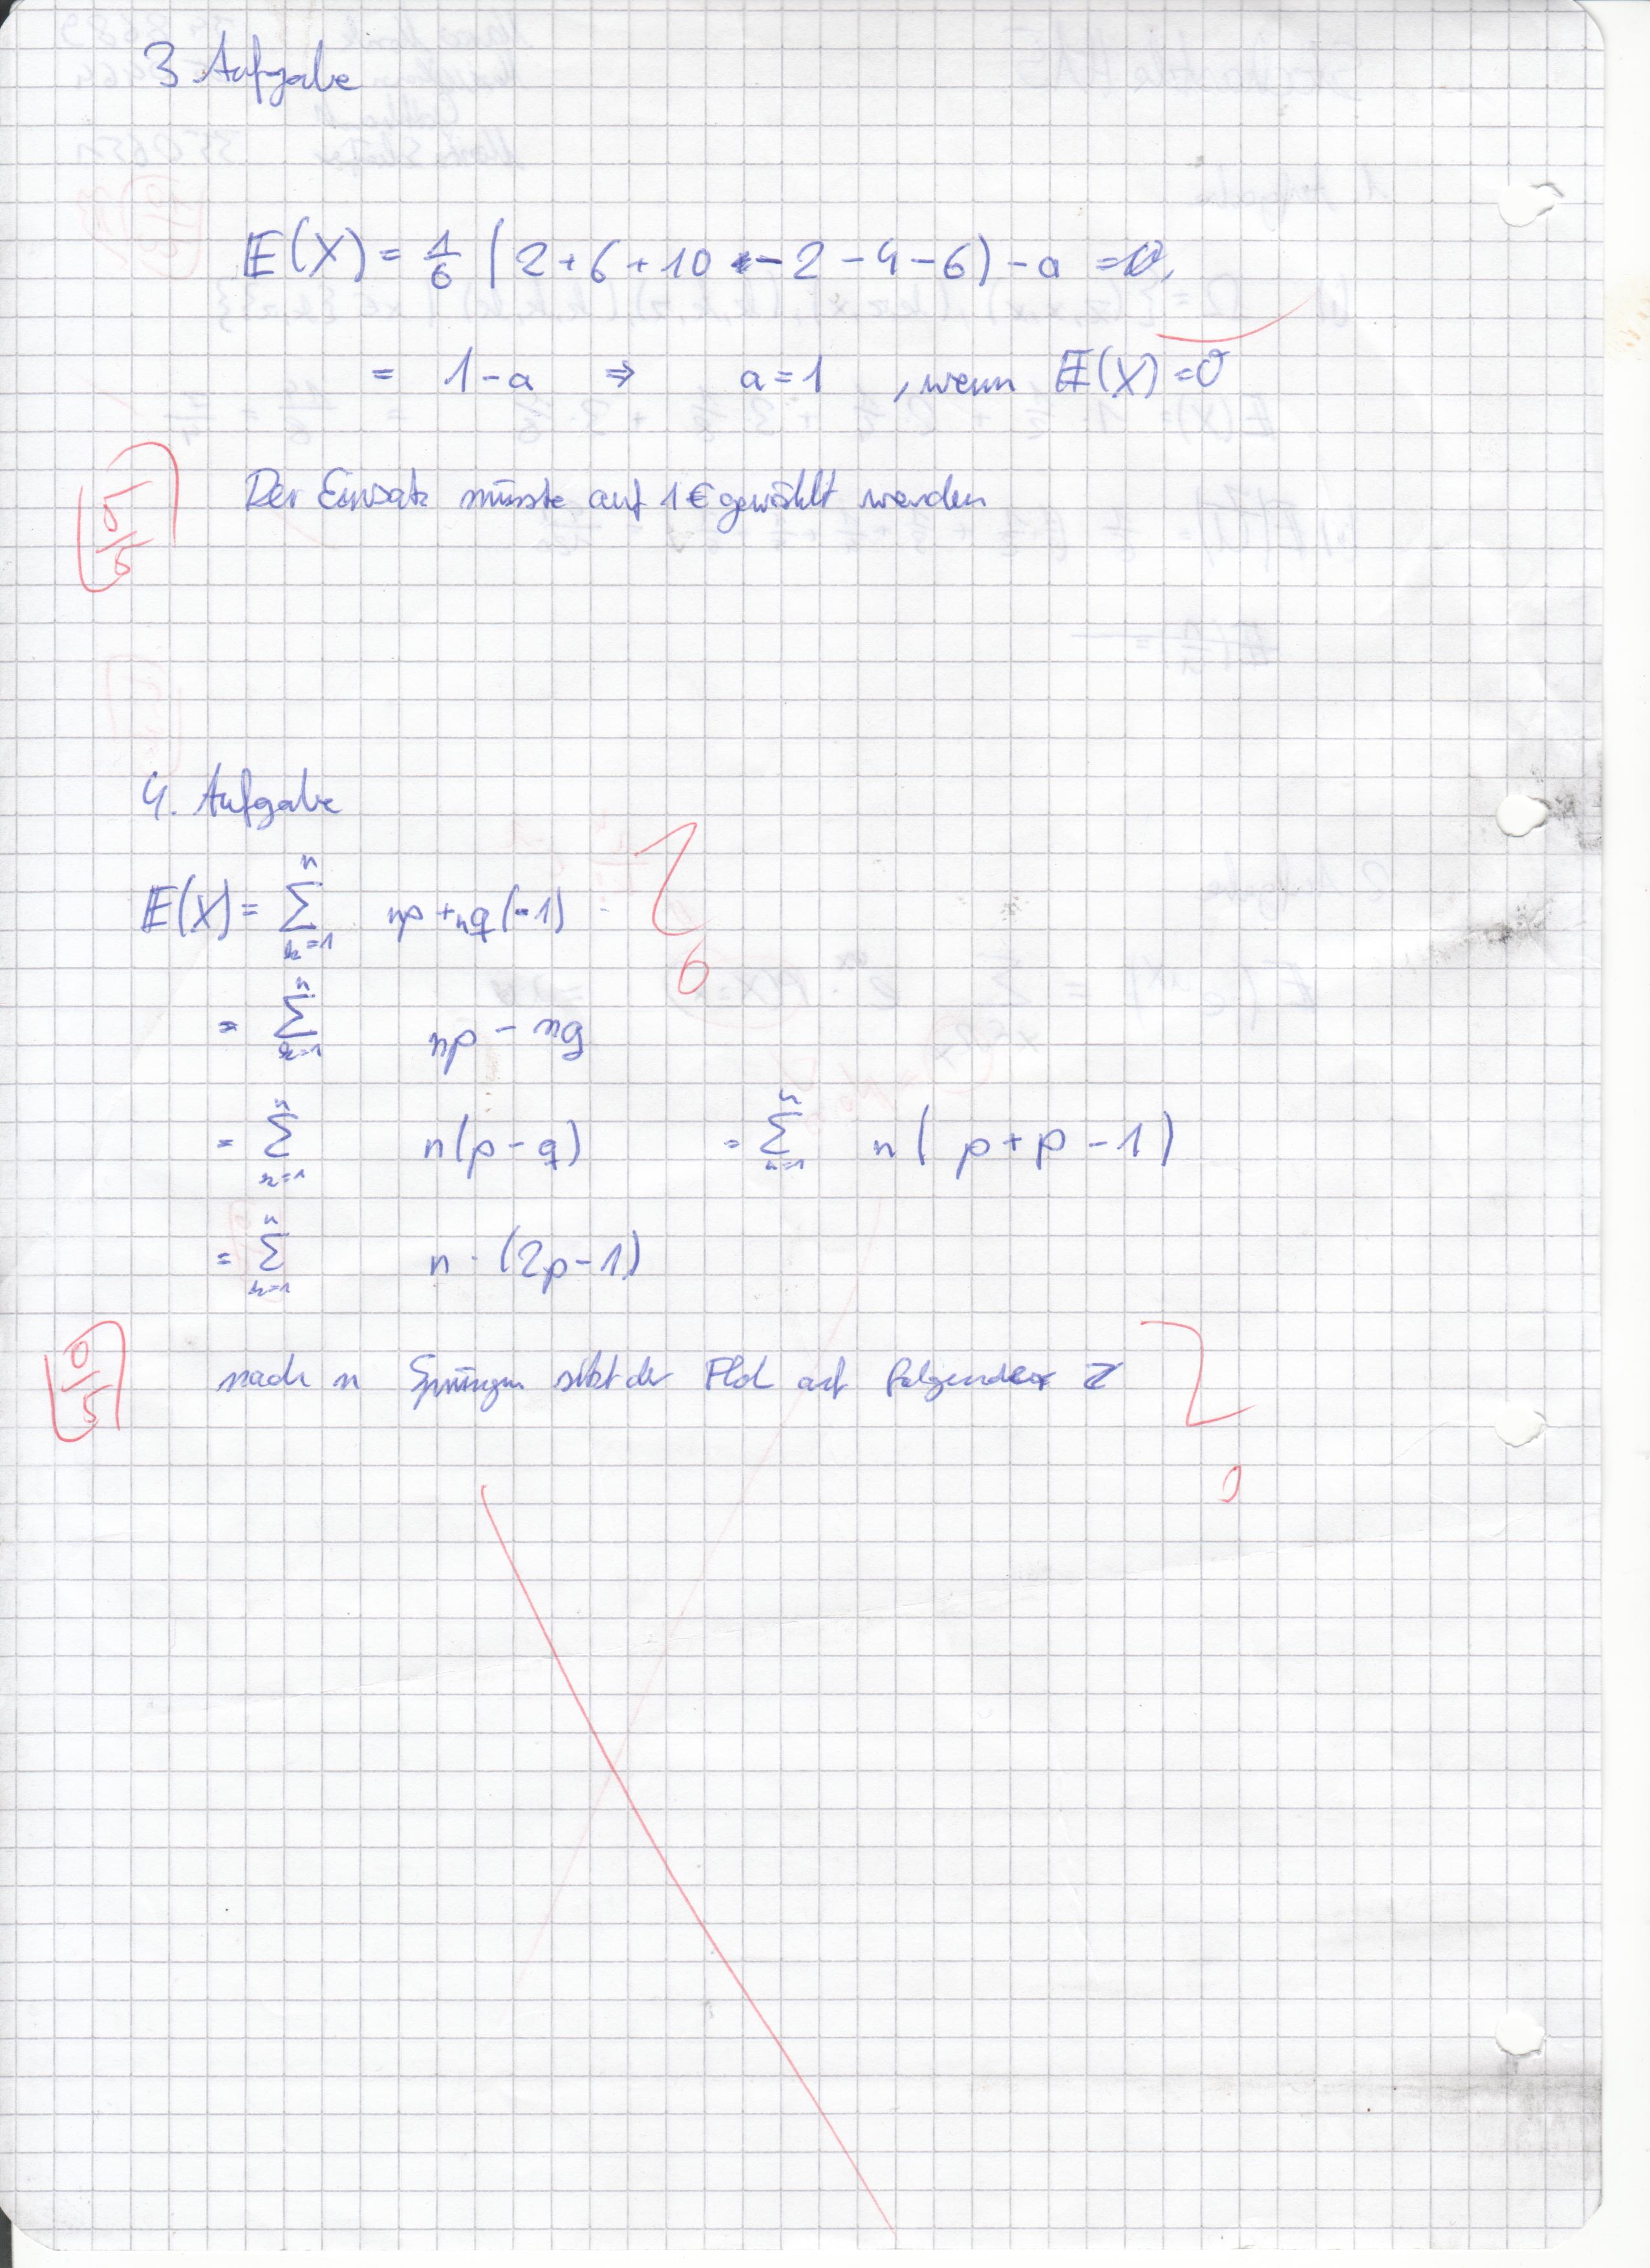 3 Aufgabe
E(X) = 1/6 (2+6+10 -2-4-6) - a = 0,
= 1-a ⇒ a=1 , wenn E(X)=0
Der Einsatz müsste auf 1€ gewählt werden
5/5
4. Aufgabe
E(X) = ∑_{n=1}^{n} np + nq(-1)
= ∑_{n=1}^{n} np - nq
= ∑_{n=1}^{n} n(p-q) = ∑_{n=1}^{n} n(p+p-1)
= ∑_{n=1}^{n} n·(2p-1)
nach n Sprüngen sitzt der Floh auf folgender Z
0/5